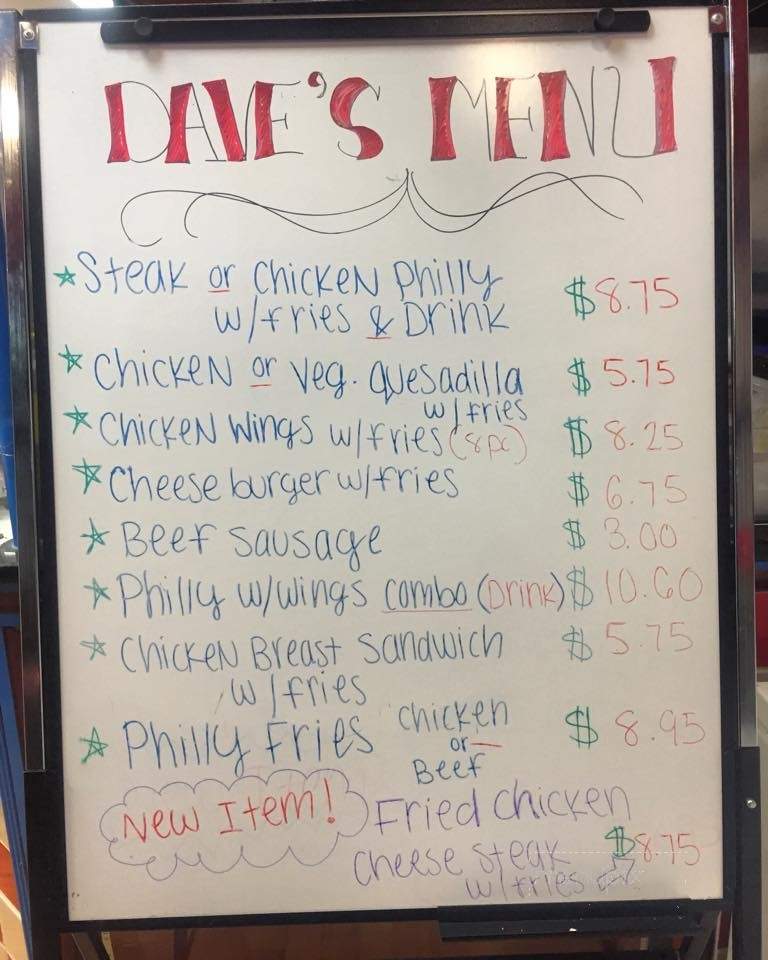 DAVE'S MENU
Steak or Chicken Philly $8.75
w/fries & Drink
Chicken or Veg. Quesadilla $5.75
w/fries
Chicken Wings w/fries (8pc) $8.25
Cheese burger w/fries $6.75
Beef Sausage $3.00
Philly w/wings combo (Drink) $10.60
Chicken Breast Sandwich $5.75
w/fries
Philly Fries Chicken or Beef $8.95
New Item! Fried Chicken
Cheese Steak $8.75
w/fries